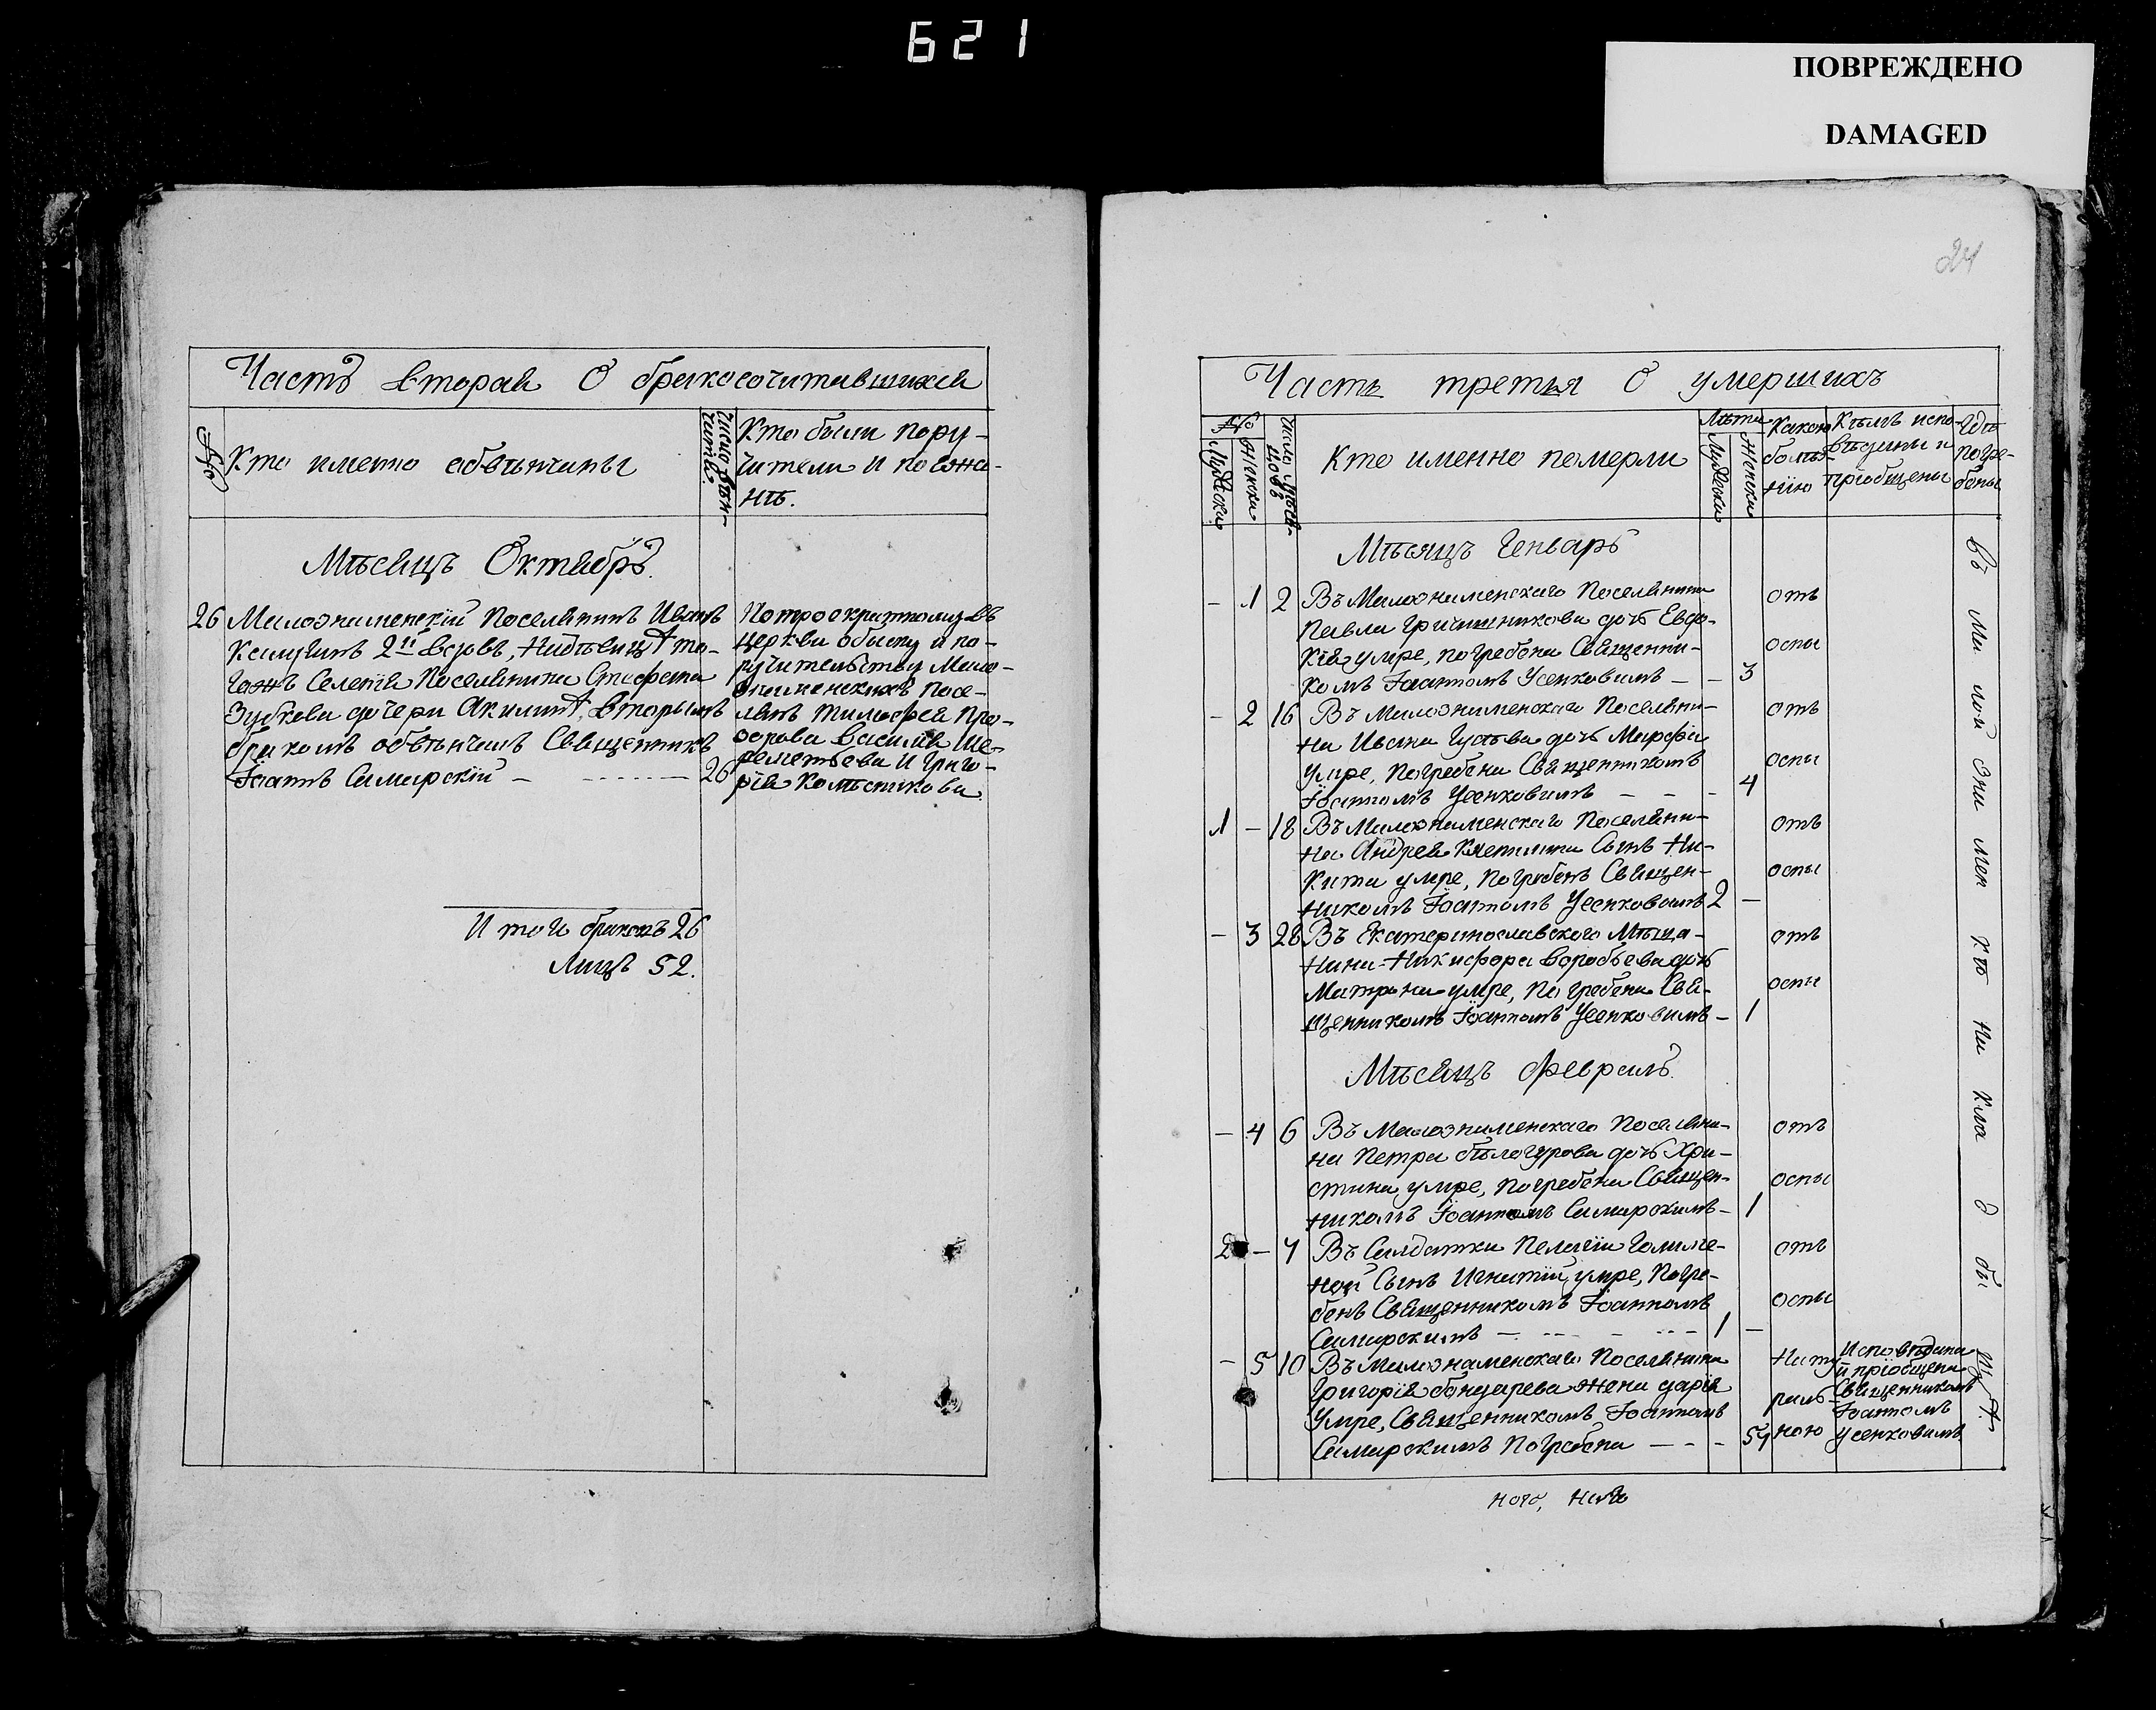 621
ПОВРЕЖДЕНО
DAMAGED
24
Часть вторая О бракосочитавшихся
№
Кто имено абвѣнчаны
Кто были пору-
чители и поѣзжа-
нѣ.
Мѣсяцъ Октябрь.
26 Малознаменскiй Поселянинъ Иванъ
2й вдовъ,
Селенiя Поселянина Стефана
Зубкова дочери вторымъ
бракомъ обвѣнчанъ Священникъ
Iоаннъ Самарскiй - - - - - 26
церкви обыску и по-
ручительству Мало-
знаменскихъ Посе-
лянъ Тимофея Про-
Василiя Ше-
реметьева и Григо-
рiя Колѣсникова
Итого браковъ 26
Лицъ 52.
Часть третья О умершихъ
№
Мужска
Женска
Число мѣся-
цовъ
Кто именно померли
Лѣта
Мужеска
Женска
Какою
болѣз-
нiю
Кѣмъ испо-
вѣданы и
прiобщены
Гдѣ
погре-
бены
Мѣсяцъ Генварь
- 1 2 Въ Малознаменскаго Поселянина
Павла дочь Евдо-
кiя умре, погребена Священни-
комъ Iоанномъ Усенковымъ - - 3
отъ
оспы
- 2 16 Въ Малознаменскаго Поселяни-
на Ивана дочь Марфа
умре, Погребена Священникомъ
Iоанномъ Усенковымъ - - - 4
отъ
оспы
1 - 18 Въ Малознаменскаго Поселяни-
на Андрея Сынъ Ни-
кита умре, Погребенъ Священ-
никомъ Iоанномъ Усенковымъ 2 -
отъ
оспы
- 3 28 Въ Екатеринославскаго Мѣща-
нина Никифора Воробьева дочь
Матрона умре, Погребена Свя-
щенникомъ Iоанномъ Усенковымъ - 1
отъ
оспы
Мѣсяцъ Февраль.
- 4 6 Въ Малознаменскаго Поселяни-
на Петра Бѣлогурова дочь Хри-
стина умре, Погребена Священ-
никомъ Iоанномъ Самарскимъ - 1
отъ
оспы
2 - 7 Въ Салдатки Пелагiи
ной Сынъ Игнатiй умре, Погре-
бенъ Священникомъ Iоанномъ
Самарскимъ - - - - 1 -
отъ
оспы
- 5 10 Въ Малознаменскаго Поселянина
Григорiя Бондарева жена дарiя
Умре, Священникомъ Iоанномъ
Самарскимъ Погребена - - - 54
Нату
раль-
ною
Исповѣдана
и прiобщена
Священникомъ
Iоанномъ
Усенковымъ
въ Ма лой Зна мен кѣ на кла д би щѣ.